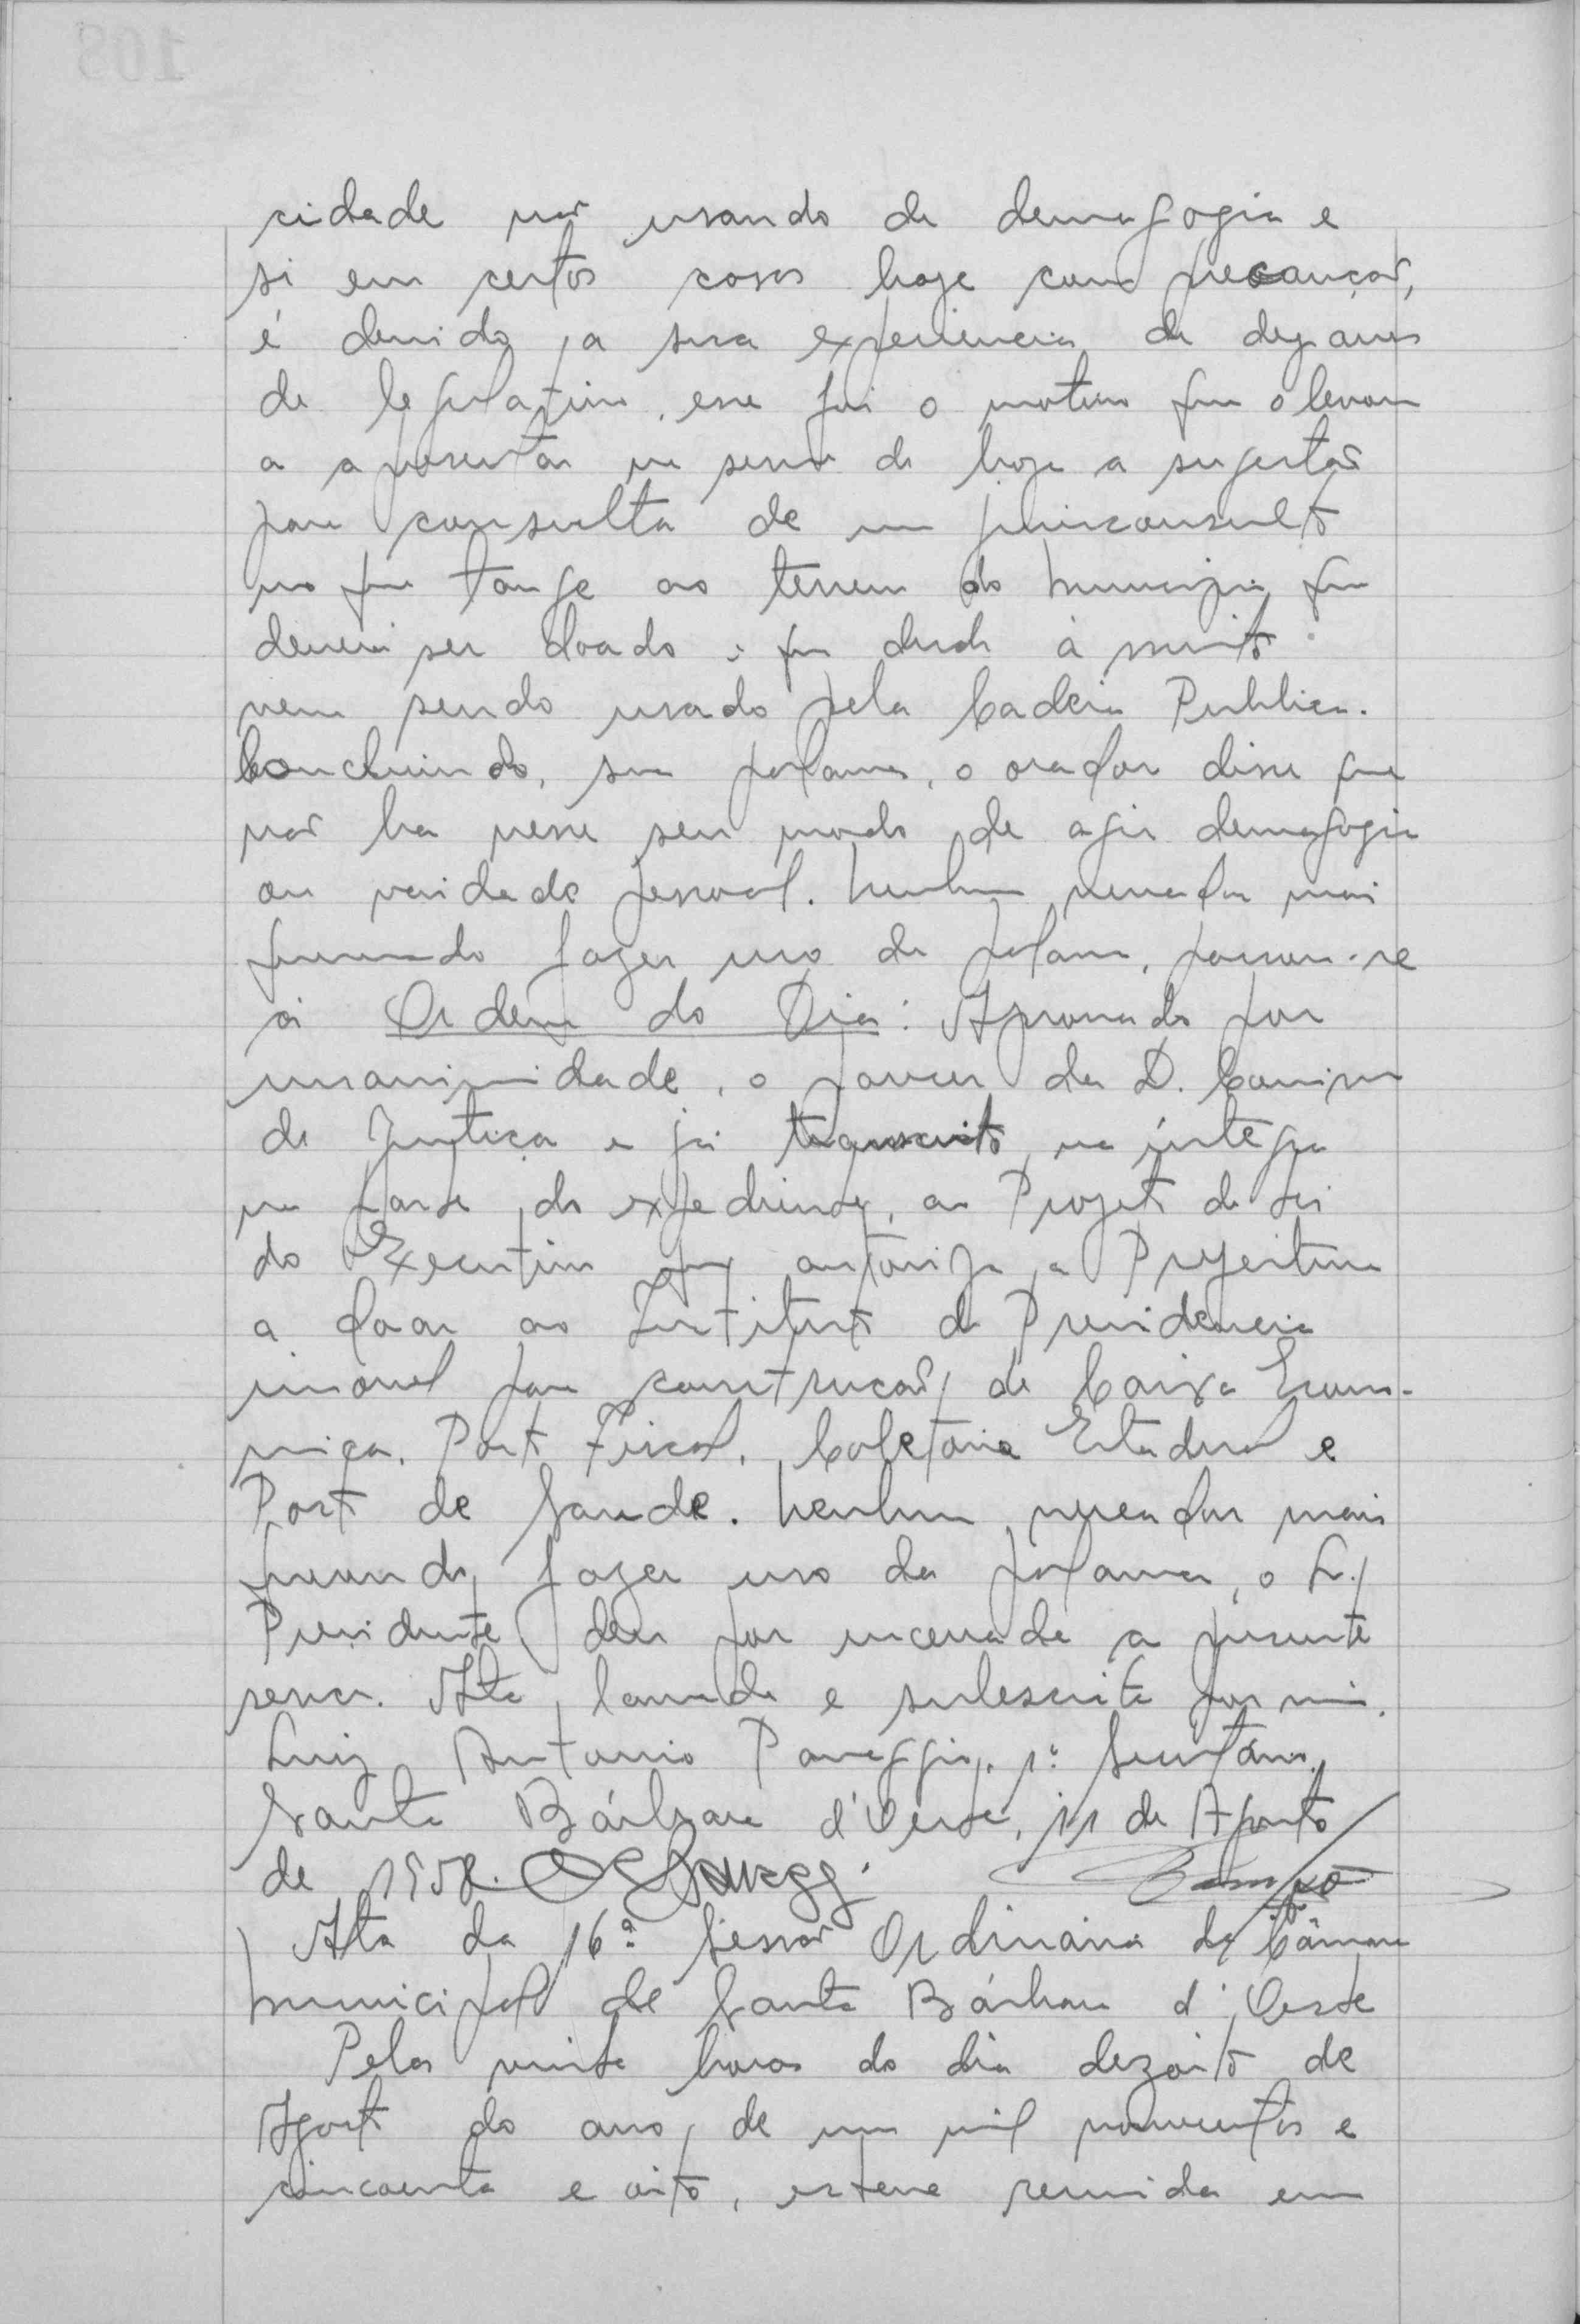 cidade não usando de demagogia e
si em certos casos hoje com precanção,
é devido a sua experiencia de dez anos
de legislativo. esse foi o motivo que o levou
a apresentar na sessão de hoje a sugestão
para consulta de um jurisconsulto
no que tange ao terreno do Municipio que
deverá ser doado e que desde à muito
vem sendo usado pela Cadeia Publica.
Concluindo, sua palavra, o orador disse que
não ha nesse seu modo de agir demagogia
ou vaidade pessoal. Nenhum vereador mais
querendo fazer uso da palavra, passou-se
á Ordem do Dia: Aprovado por
unanimidade, o parecer da D. Comissão
de Justiça e já transcrito na íntegra
na parte do expediente, ao Projeto de Lei
do Executivo que autoriza a Prefeitura
a doar ao Instituto de Previdencia
imovel para construcão de Caixa Econo-
mica, Posto Fiscal, Coletoria Estadual e
Posto de Saude. Nenhum vereador mais
querendo fazer uso da palavra, o Sr.
Presidente deu por encerrada a presente
sessão. Ata lavrada e subescrita por mim.
Luiz Antonio Panaggio, 1º Secretário.
Santa Bárbara d'Oeste, 11 de Agosto
de 1958.
Ata da 16ª Sessão Ordinaria da Câmara
Municipal de Santa Bárbara d'Oeste
Pelas vinte horas do dia dezoito de
Agosto do ano de um mil novecentos e
cincoenta e oito, esteve reunida em